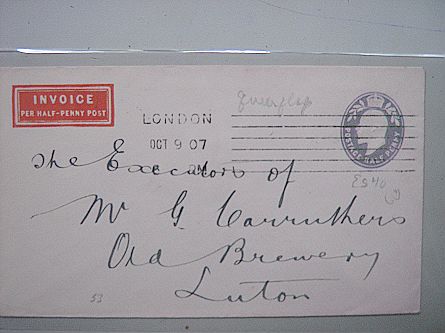 INVOICE
PER HALF-PENNY POST
LONDON
OCT 9 07
PM
POSTAGE HALFPENNY
ES40
The Executors of
Mr G Carruthers
Old Brewery
Luton
53